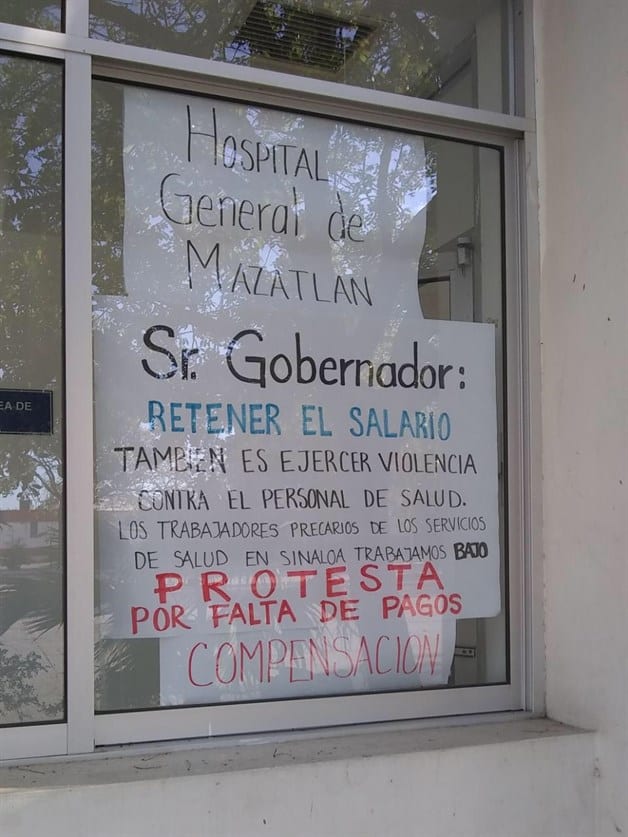 HOSPITAL
General de
MAZATLAN
Sr. Gobernador:
RETENER EL SALARIO
TAMBIEN ES EJERCER VIOLENCIA
CONTRA EL PERSONAL DE SALUD.
LOS TRABAJADORES PRECARIOS DE LOS SERVICIOS
DE SALUD EN SINALOA TRABAJAMOS BAJO
PROTESTA
POR FALTA DE PAGOS
COMPENSACION
EA DE